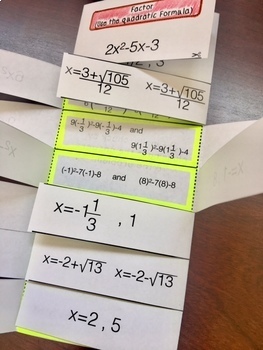 Factor
(Use the quadratic Formula)
2x²-5x-3
x=3+√105/12 x=3+√105/12
9(-1/3)²-9(-1/3)-4 and
9(1 1/3)²-9(1 1/3)-4
(-1)²-7(-1)-8 and (8)²-7(8)-8
x=-1 1/3 , 1
x=-2+√13 x=-2-√13
x=2 , 5